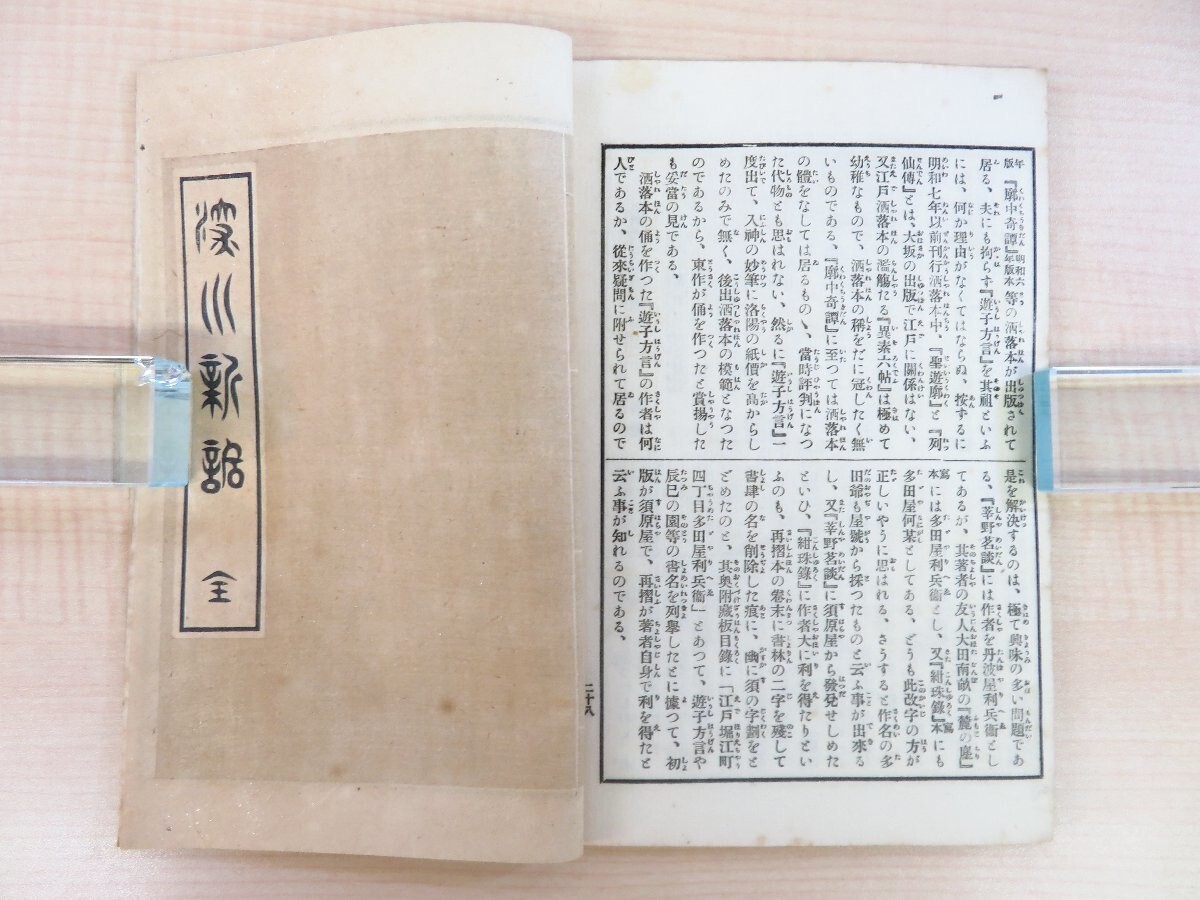 年版『廓中奇譚』明和六年版本等の洒落本が出版されて
居る、夫にも拘らず『遊子方言』を其祖といふ
には、何か理由がなくてはならぬ、按ずるに
明和七年以前刊行洒落本中、『聖遊廓』と『列
仙傳』とは、大坂の出版で江戸に關係はない、
又江戸洒落本の濫觴たる『異素六帖』は極めて
幼稚なもので、洒落本の稱をだに冠したく無
いものである、『廓中奇譚』に至つては洒落本
の體をなしては居るものゝ、當時評判になつ
た代物とも思はれない、然るに『遊子方言』一
度出て、入神の妙筆に洛陽の紙價を高からし
めたのみで無く、後出洒落本の模範となつた
のであるから、東作が俑を作つたと賞揚した
も妥當の見である。
洒落本の俑を作つた『遊子方言』の作者は何
人であるか、從來疑問に附せられて居るので
是を解決するのは、極て興味の多い問題であ
る、『莘野茗談』には作者を丹波屋利兵衞とし
てあるが、其著者の友人大田南畝の『麓の塵』
寫本には多田屋利兵衞とし、又『紺珠錄』寫本にも
多田屋何某としてある、どうも此改字の方が
正しいやうに思はれる、さうすると作名の多
田爺も屋號から採つたものと云ふ事が出來る
し、又『莘野茗談』に須原屋から發兌せしめた
といひ、『紺珠錄』に作者大に利を得たりとい
ふのも、再摺本の卷末に書林の二字を殘して
書肆の名を削除した痕に、幽に須の字劃をと
どめたのと、其奥附藏板目錄に「江戸堀江町
四丁目多田屋利兵衞」とあつて、遊子方言や
辰巳の園等の書名を列擧したとに據つて、初
版が須原屋で、再摺が著者自身で利を得たと
云ふ事が知れるのである、
二十八
深川新話 全